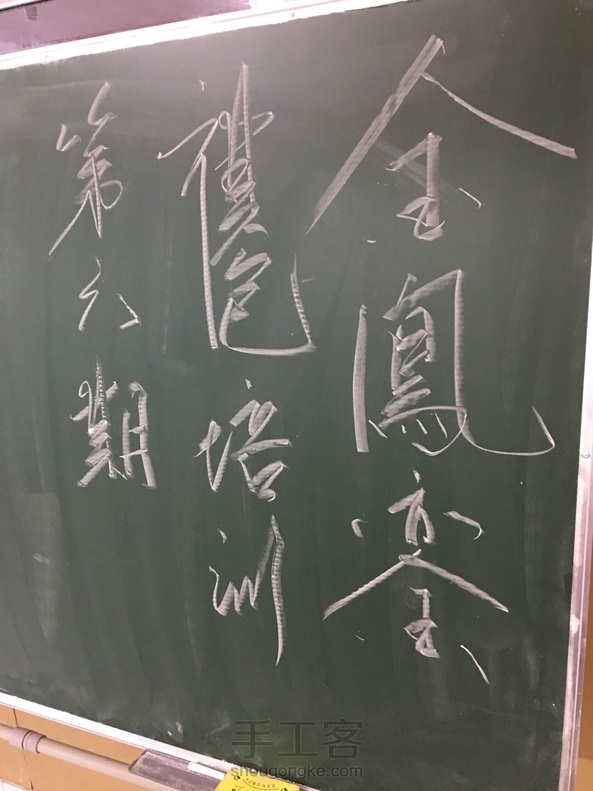 金鳳銮
培训
第六期
手工客
shougongke.com